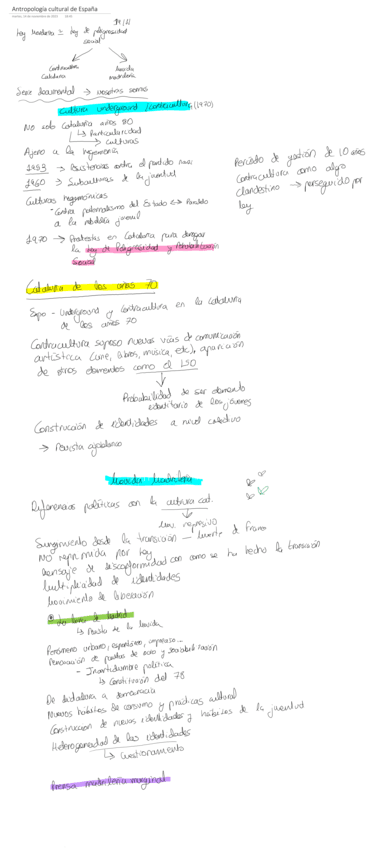 Antropología cultural de España
14/11
Ley Moderno = Ley de peligrosidad
social
Contracultura
Cataluña
Movida
madrileña
Serie documental → nosotros somos
Cultura underground / contracultura (1970)
No solo Cataluña años 80
↳ Particularidad
↳ culturas
Ajeno a la hegemonía
1959 → Resistencias contra el partido nazi
1960 → Subculturas de la juventud
Culturas hegemónicas
Contra paternalismo del Estado ↔ Paralelo
a la rebeldía juvenil
1970 → Protestas en Cataluña para derogar
la Ley de Peligrosidad y Rehabilitación
Social
Periodo de gestión de 10 años
Contracultura como algo
clandestino → perseguido por
ley
Cataluña de los años 70
Expo - Underground y contracultura en la Cataluña
de los años 70
Contracultura supuso nuevas vías de comunicación
artística (cine, libros, música, etc), aparición
de otros elementos como el LSD
↓
Probabilidad de ser elemento
identitario de los jóvenes
Construcción de identidades a nivel colectivo
→ Revista ajoblanco
Movida Madrileña
Diferencias políticas con la cultura cat.
↓
más represivo
Surgimiento desde la transición — muerte de Franco
No reprimida por ley
Mensaje de disconformidad con como se ha hecho la transición
Multiplicidad de identidades
Movimiento de liberación
La luna de Madrid
↳ Revista de la movida
Fenómeno urbano, espontáneo, impreciso...
- Incertidumbre política
↳ Constitución del 78
De dictadura a democracia
Nuevos hábitos de consumo y prácticas cultural
Construcción de nuevas identidades y hábitos de la juventud
Heterogeneidad de las identidades
↳ Cuestionamiento
Prensa madrileña marginal